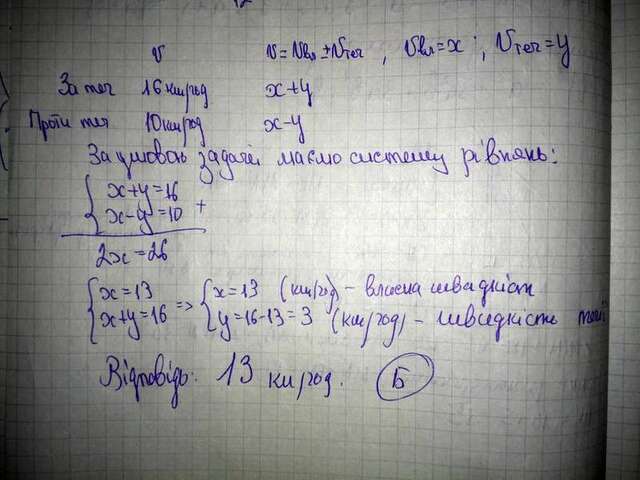 v v = vвл ± vтеч , vвл = x ; vтеч = y
За теч 16 км/год x+y
Проти теч 10 км/год x-y
За умовою задачі маємо систему рівнянь:
{ x+y=16
x-y=10 +
2x=26
{ x=13 => { x=13 (км/год) - власна швидкість
x+y=16 y=16-13=3 (км/год) - швидкість течії
Відповідь: 13 км/год. Б